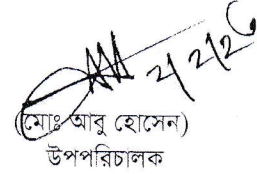 (মোঃ আবু হোসেন)
উপপরিচালক